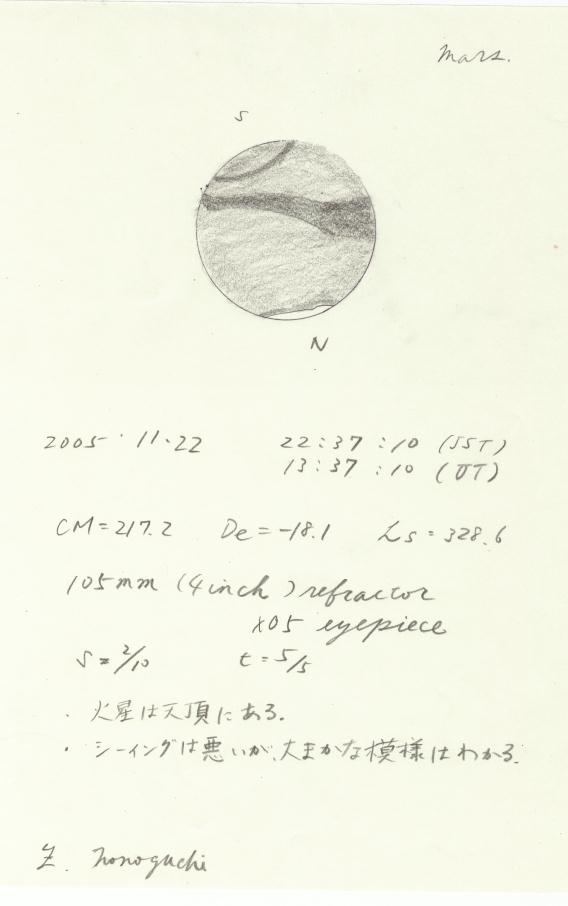 Mars.
S
N
2005・11・22 22:37:10 (JST)
13:37:10 (UT)
CM=217.2 De=-18.1 Ls=328.6
105mm (4inch) refractor
XO5 eyepiece
S=2/10 t=5/5
・火星は天頂にある.
・シーイングは悪いが、大まかな模様はわかる.
nonoguchi